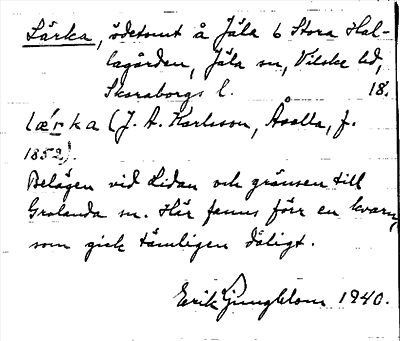 Lärka, ödetomt å Jäla 6 Stora Hal-
lagården, Jäla sn, Vilske hd,
Skaraborgs l. 18.
læ̀rka (J. A. Karlsson, Åsalta, f.
1852).
Belägen vid Lidan och gränsen till
Grolanda sn. Här fanns förr en kvarn,
som gick tämligen dåligt.
Erik Ljungblom 1940.